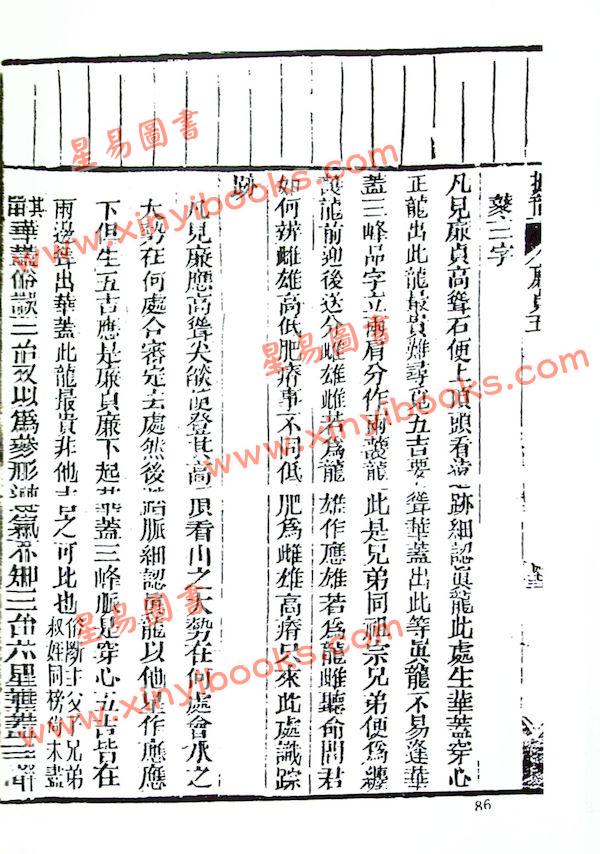 廉貞五
三字
凡見廉貞高聳石便上頂頭看遠跡細認眞龍此處生華蓋穿心
正龍出此龍最貴難尋覓五吉要聳華蓋出此等眞龍不易逢華
蓋三峰品字立兩肩分作兩護龍此是兄弟同祖宗兄弟便爲纏
護龍前迎後送分雌雄雌若爲龍雄作應雄若爲龍雌聽命問君
如何辨雌雄高低肥瘠事不同低肥爲雌雄高瘠只來此處識踪
跡
凡見廉應高聳尖燄便登其高頂看山之大勢在何處會水之
大勢在何處合審定去處然後踏脈細認眞龍以他星作應應
下但生五吉應是廉貞廉下起華蓋三峰脈是穿心五吉皆在
兩邊聳出華蓋此龍最貴非他吉之可比也俗斷主父子兄弟
叔姪同榜尚未盡
其
華蓋俗談三台又以爲參形氣不知三台六星華蓋三
86
星易圖書
www.xinyibooks.com
星易圖書
www.xinyibooks.com
星易圖書
www.xinyibooks.com